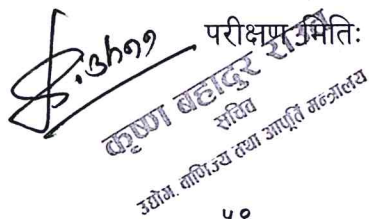 Krishna
परीक्षण मितिः
कृष्ण बहादुर राउत
सचिव
उद्योग, वाणिज्य तथा आपूर्ति मन्त्रालय
५१